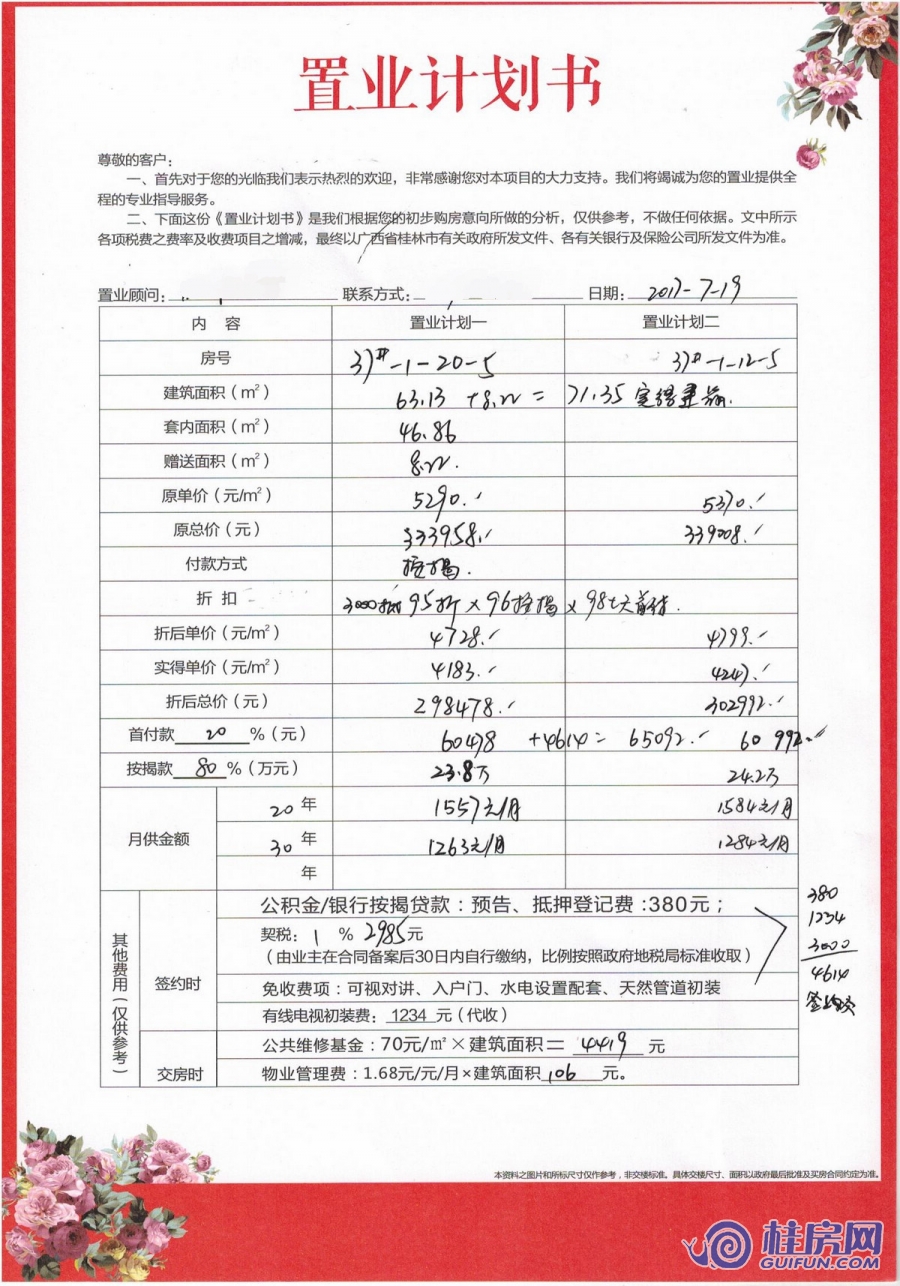 置业计划书
尊敬的客户：
一、首先对于您的光临我们表示热烈的欢迎，非常感谢您对本项目的大力支持。我们将竭诚为您的置业提供全
程的专业指导服务。
二、下面这份《置业计划书》是我们根据您的初步购房意向所做的分析，仅供参考，不做任何依据。文中所示
各项税费之费率及收费项目之增减，最终以广西省桂林市有关政府所发文件、各有关银行及保险公司所发文件为准。
置业顾问： 联系方式： 日期：2017-7-19
内 容 置业计划一 置业计划二
房号 37#-1-20-5 37#-1-12-5
建筑面积（m²） 63.13 +8.22 = 71.35
套内面积（m²） 46.86
赠送面积（m²） 8.22.
原单价（元/m²） 5290. 5370.
原总价（元） 333958. 339008.
付款方式 按揭.
折 扣 3000抵 95折 × 96按揭 × 98七天首付.
折后单价（元/m²） 4728. 4799.
实得单价（元/m²） 4183. 4247.
折后总价（元） 298478. 302992.
首付款 20 %（元） 60478 +4614= 65092. 60992.
按揭款 80 %（万元） 23.8万 24.2万
月供金额 20 年 1557元/月 1584元/月
30 年 1263元/月 1284元/月
年
其他费用（仅供参考）
签约时
公积金/银行按揭贷款：预告、抵押登记费：380元；
契税： 1 % 2985元
（由业主在合同备案后30日内自行缴纳，比例按照政府地税局标准收取）
免收费项：可视对讲、入户门、水电设置配套、天然管道初装
有线电视初装费：1234 元（代收）
380
1234
3000
4614
交房时
公共维修基金：70元/㎡×建筑面积＝ 4419 元
物业管理费：1.68元/元/月×建筑面积 106 元。
本资料之图片和所标尺寸仅作参考，非交楼标准。具体交楼尺寸、面积以政府最后批准及买房合同约定为准。
桂房网
GUIFUN.COM